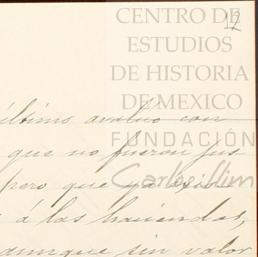 12
CENTRO DE
ESTUDIOS
DE HISTORIA
DE MEXICO
FUNDACIÓN
Carlos Slim
último avalúo con
que no fueron sus
pero que ya
á las haciendas,
aunque sin valor